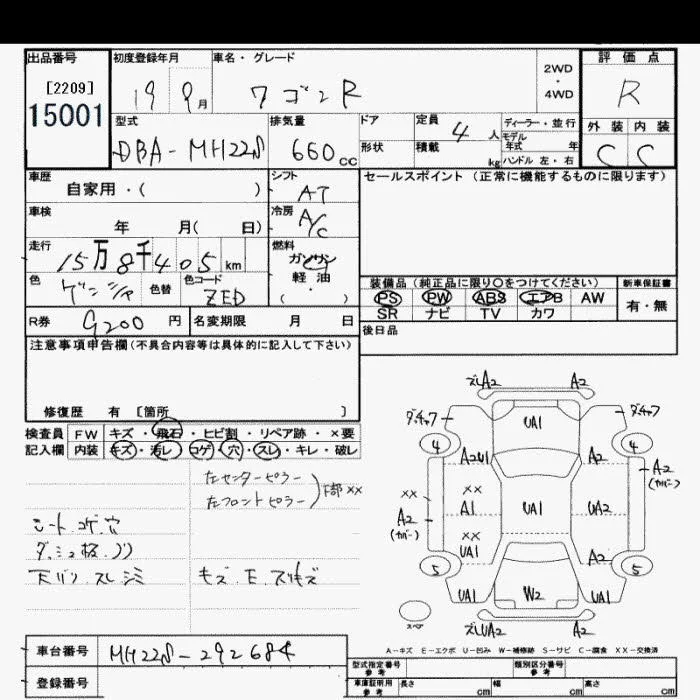 出品番号 初度登録年月 車名・グレード 評価点
[2209] 2WD・4WD
15001 19 9月 ワゴンR R
型式 排気量 ドア 定員 ディーラー・並行 外装 内装
DBA-MH22S 660cc 4人 モデル年式 年
形状 積載 kg ハンドル 左・右 C C
車歴 シフト セールスポイント (正常に機能するものに限ります)
自家用・( ) AT
車検 冷房
年 月( 日) A/C
走行 燃料
15万8千405km ガソリン
色 色替 色コード 軽油
ZED ・( )
装備品 (純正品に限り○をつけてください) 新車保証書
PS PW ABS エアB AW 有・無
SR ナビ TV カワ
R券 9200円 名変期限 月 日 後日品
注意事項申告欄(不具合内容等は具体的に記入して下さい)
修復歴 有 [箇所 ]
検査員 FW キズ・飛石・ヒビ割・リペア跡・×要
記入欄 内装 キズ・汚レ・コゲ・穴・スレ・キレ・破レ
左センターピラー
左フロントピラー 下部 XX
シート コゲ 穴
天バリ スレ シミ
ズレA2 A2
ダ.チャフ UA1 ダ.チャフ
4 4
A2 A2 (カバー)
XX XX
A2 (カバー) A1 UA1 UA2
XX
UA1 A2
5 5
UA1 W2 UA1
スペア
ズレUA2 A2
A-キズ E-エクボ U-凹み W-補修跡 S-サビ C-腐食 XX-交換済
車台番号 MH22S-292684
登録番号
型式指定番号 参考 類別区分番号 参考
車庫証明用 参考 長さ cm 幅 cm 高さ cm